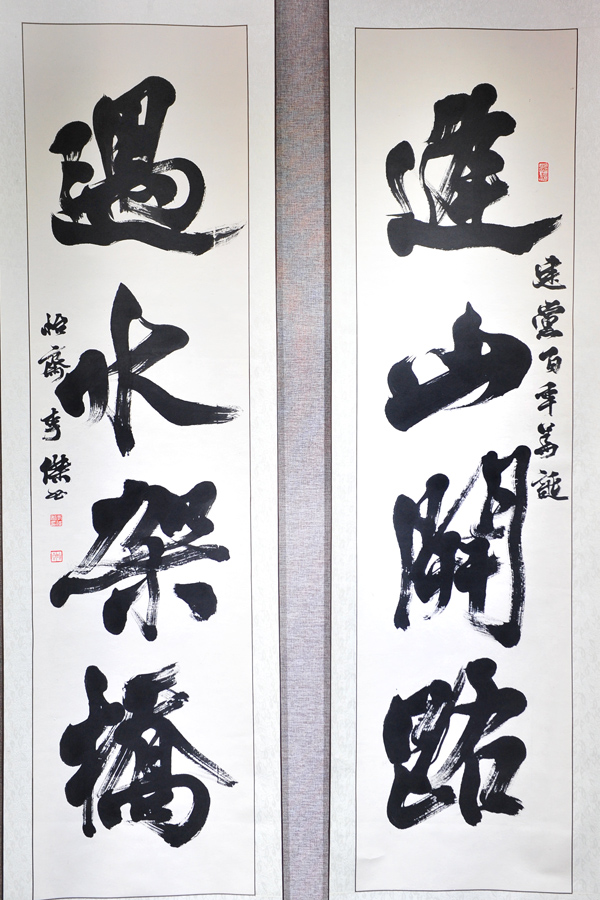 逢山開路
建黨百年華誕
遇水架橋
怡齋傑书